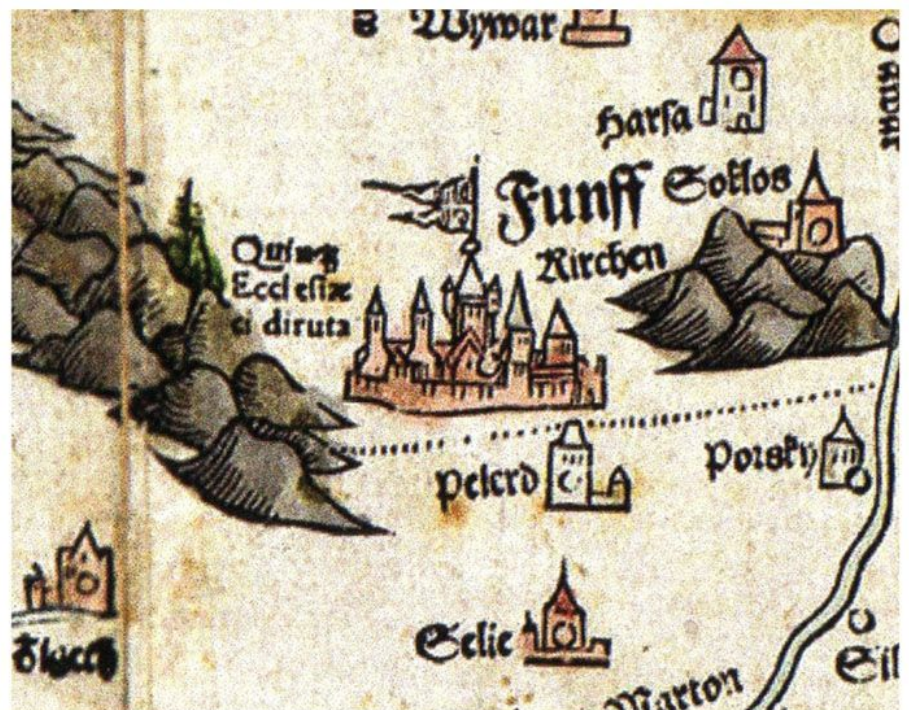 Wywar
Harsa
Funff
Kirchen
Soklos
Quinqz
Ecclesiae
ci diruta
Pelerd
Porsky
Selic
Marton